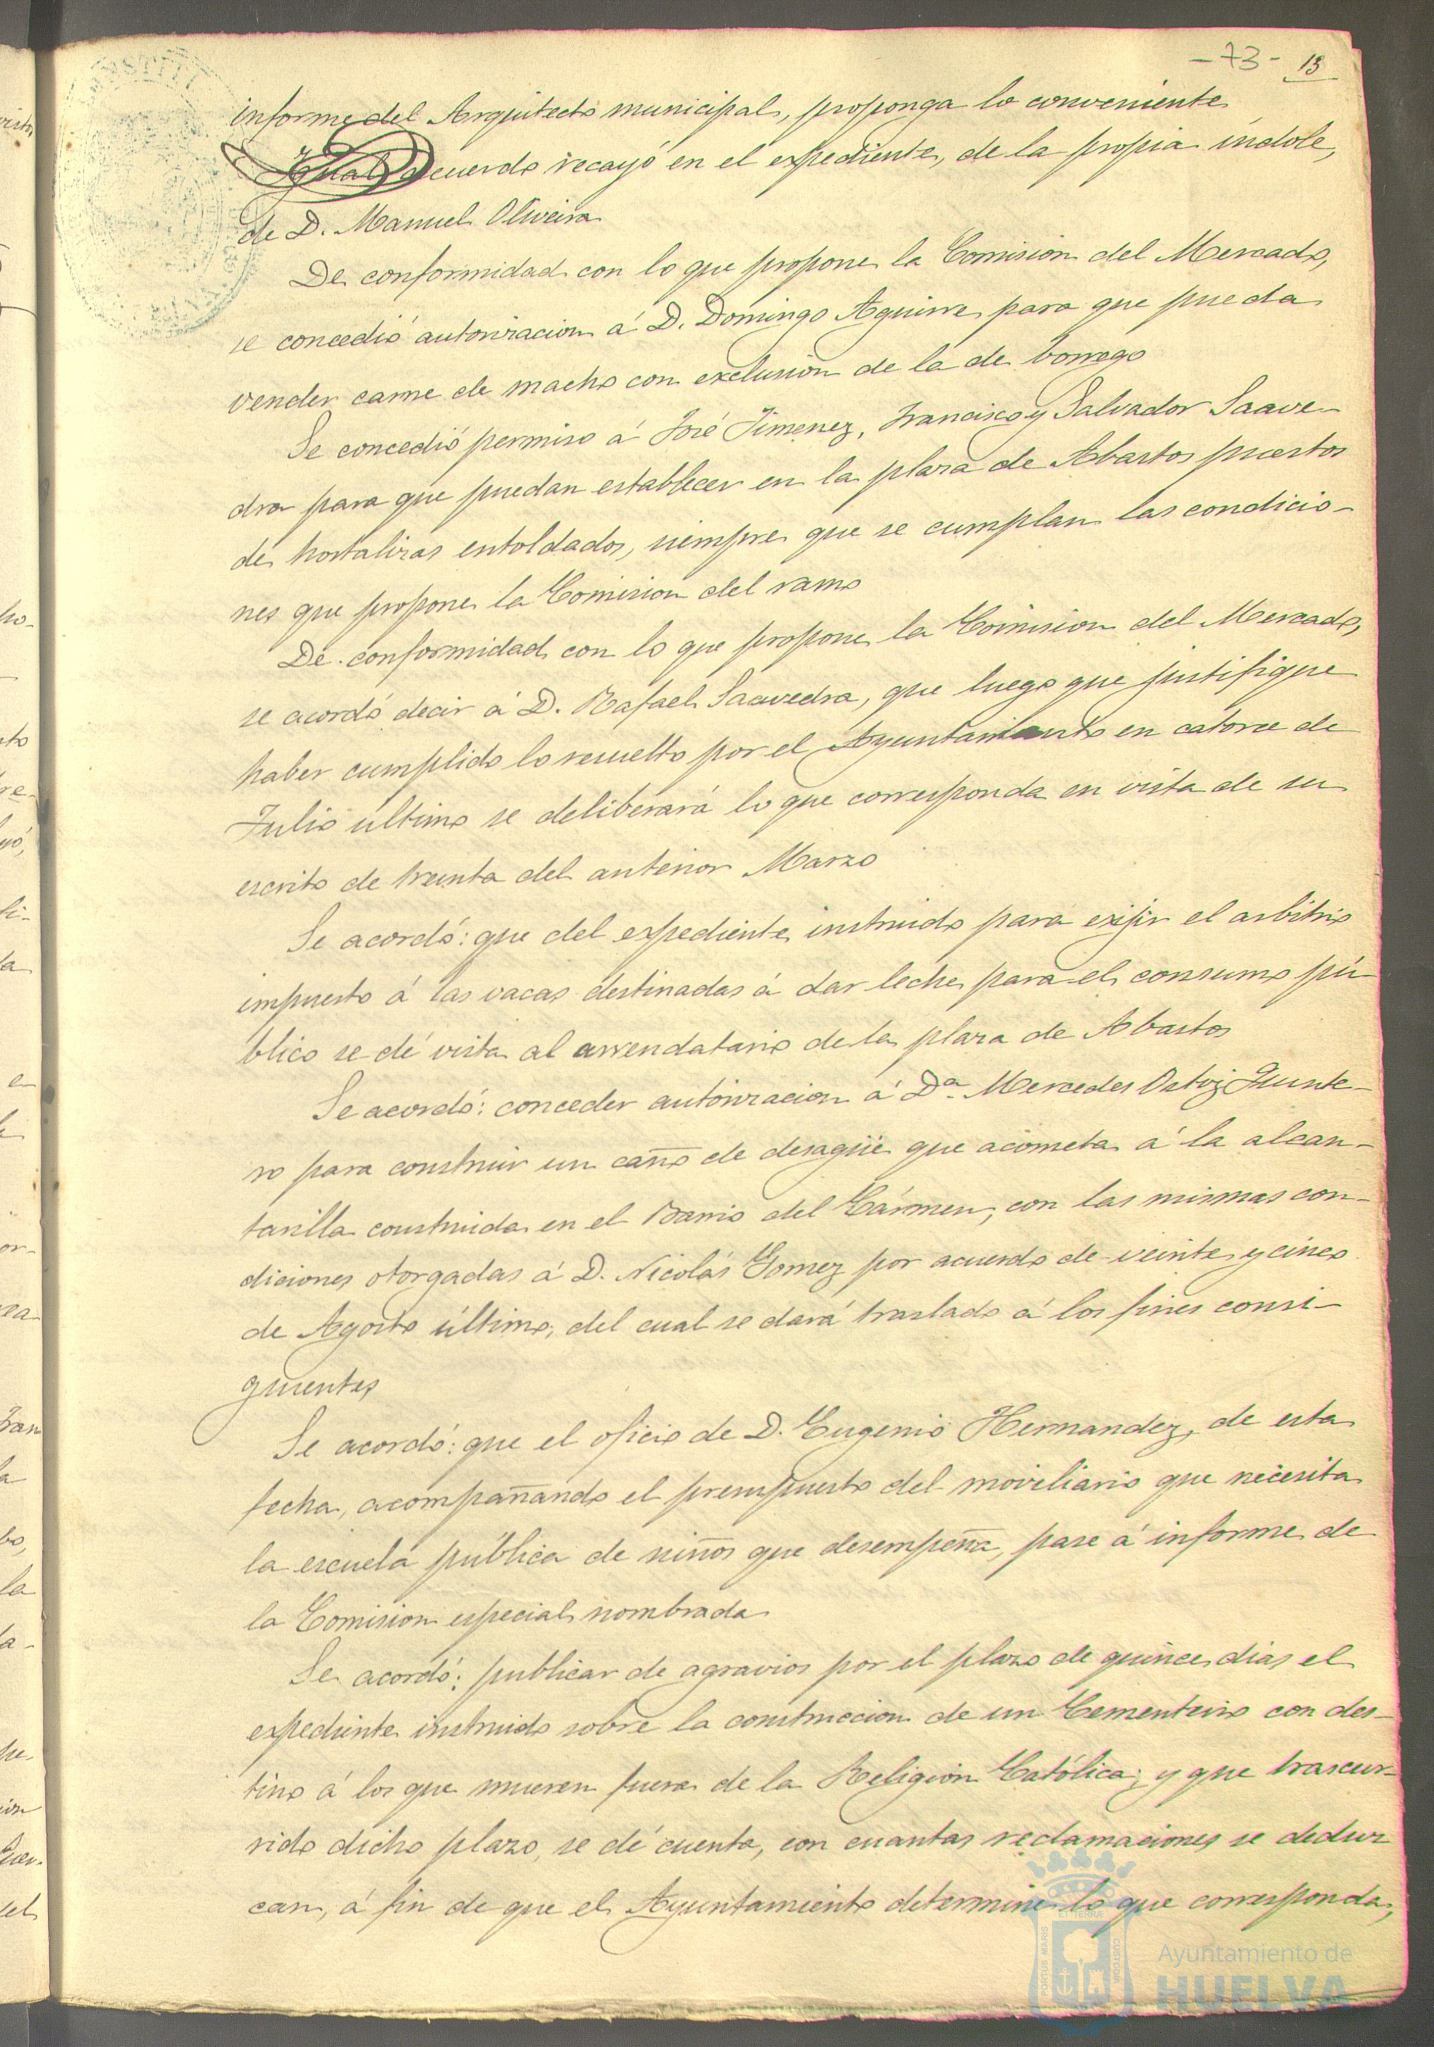 -73- 13
informe del Arquitecto municipal, proponga lo conveniente
Igual acuerdo recayó en el expediente, de la propia índole,
de D. Manuel Oliveira
De conformidad con lo que propone la Comision del Mercado,
se concedió autorizacion á D. Domingo Aguirre para que pueda
vender carne de macho con exclusión de la de borrego
Se concedió permiso á José Jimenez, Francisco y Salvador Saave-
dra para que puedan establecer en la plaza de Abastos puestos
de hortalizas entoldados, siempre que se cumplan las condicio-
nes que propone la Comision del ramo
De conformidad con lo que propone la Comision del Mercado,
se acordó decir á D. Rafael Saavedra, que luego que justifique
haber cumplido lo resuelto por el Ayuntamiento en catorce de
Julio último se deliberará lo que corresponda en vista de su
escrito de treinta del anterior Marzo
Se acordó: que del expediente instruido para exijir el arbitrio
impuesto á las vacas destinadas á dar leche para el consumo pú-
blico se dé vista al arrendatario de la plaza de Abastos
Se acordó: conceder autorizacion á Dª Mercedes Ortiz Quinte-
ro para construir un caño de desagüe que acometa á la alcan-
tarilla construida en el Barrio del Cármen, con las mismas con-
diciones otorgadas á D. Nicolás Gomez por acuerdo de veinte y cinco
de Agosto último, del cual se dará traslado á los fines consi-
guientes
Se acordó: que el oficio de D. Eugenio Hernandez, de esta
fecha, acompañando el presupuesto del moviliario que necesita
la escuela pública de niños que desempeña, pase á informe de
la Comision especial nombrada
Se acordó: publicar de agravios por el plazo de quince dias el
expediente instruido sobre la construccion de un Cementerio con des-
tino á los que mueren fuera de la Religion Católica; y que trascur-
rido dicho plazo, se dé cuenta, con cuantas reclamaciones se deduz
can, á fin de que el Ayuntamiento determine lo que corresponda,
Ayuntamiento de
HUELVA